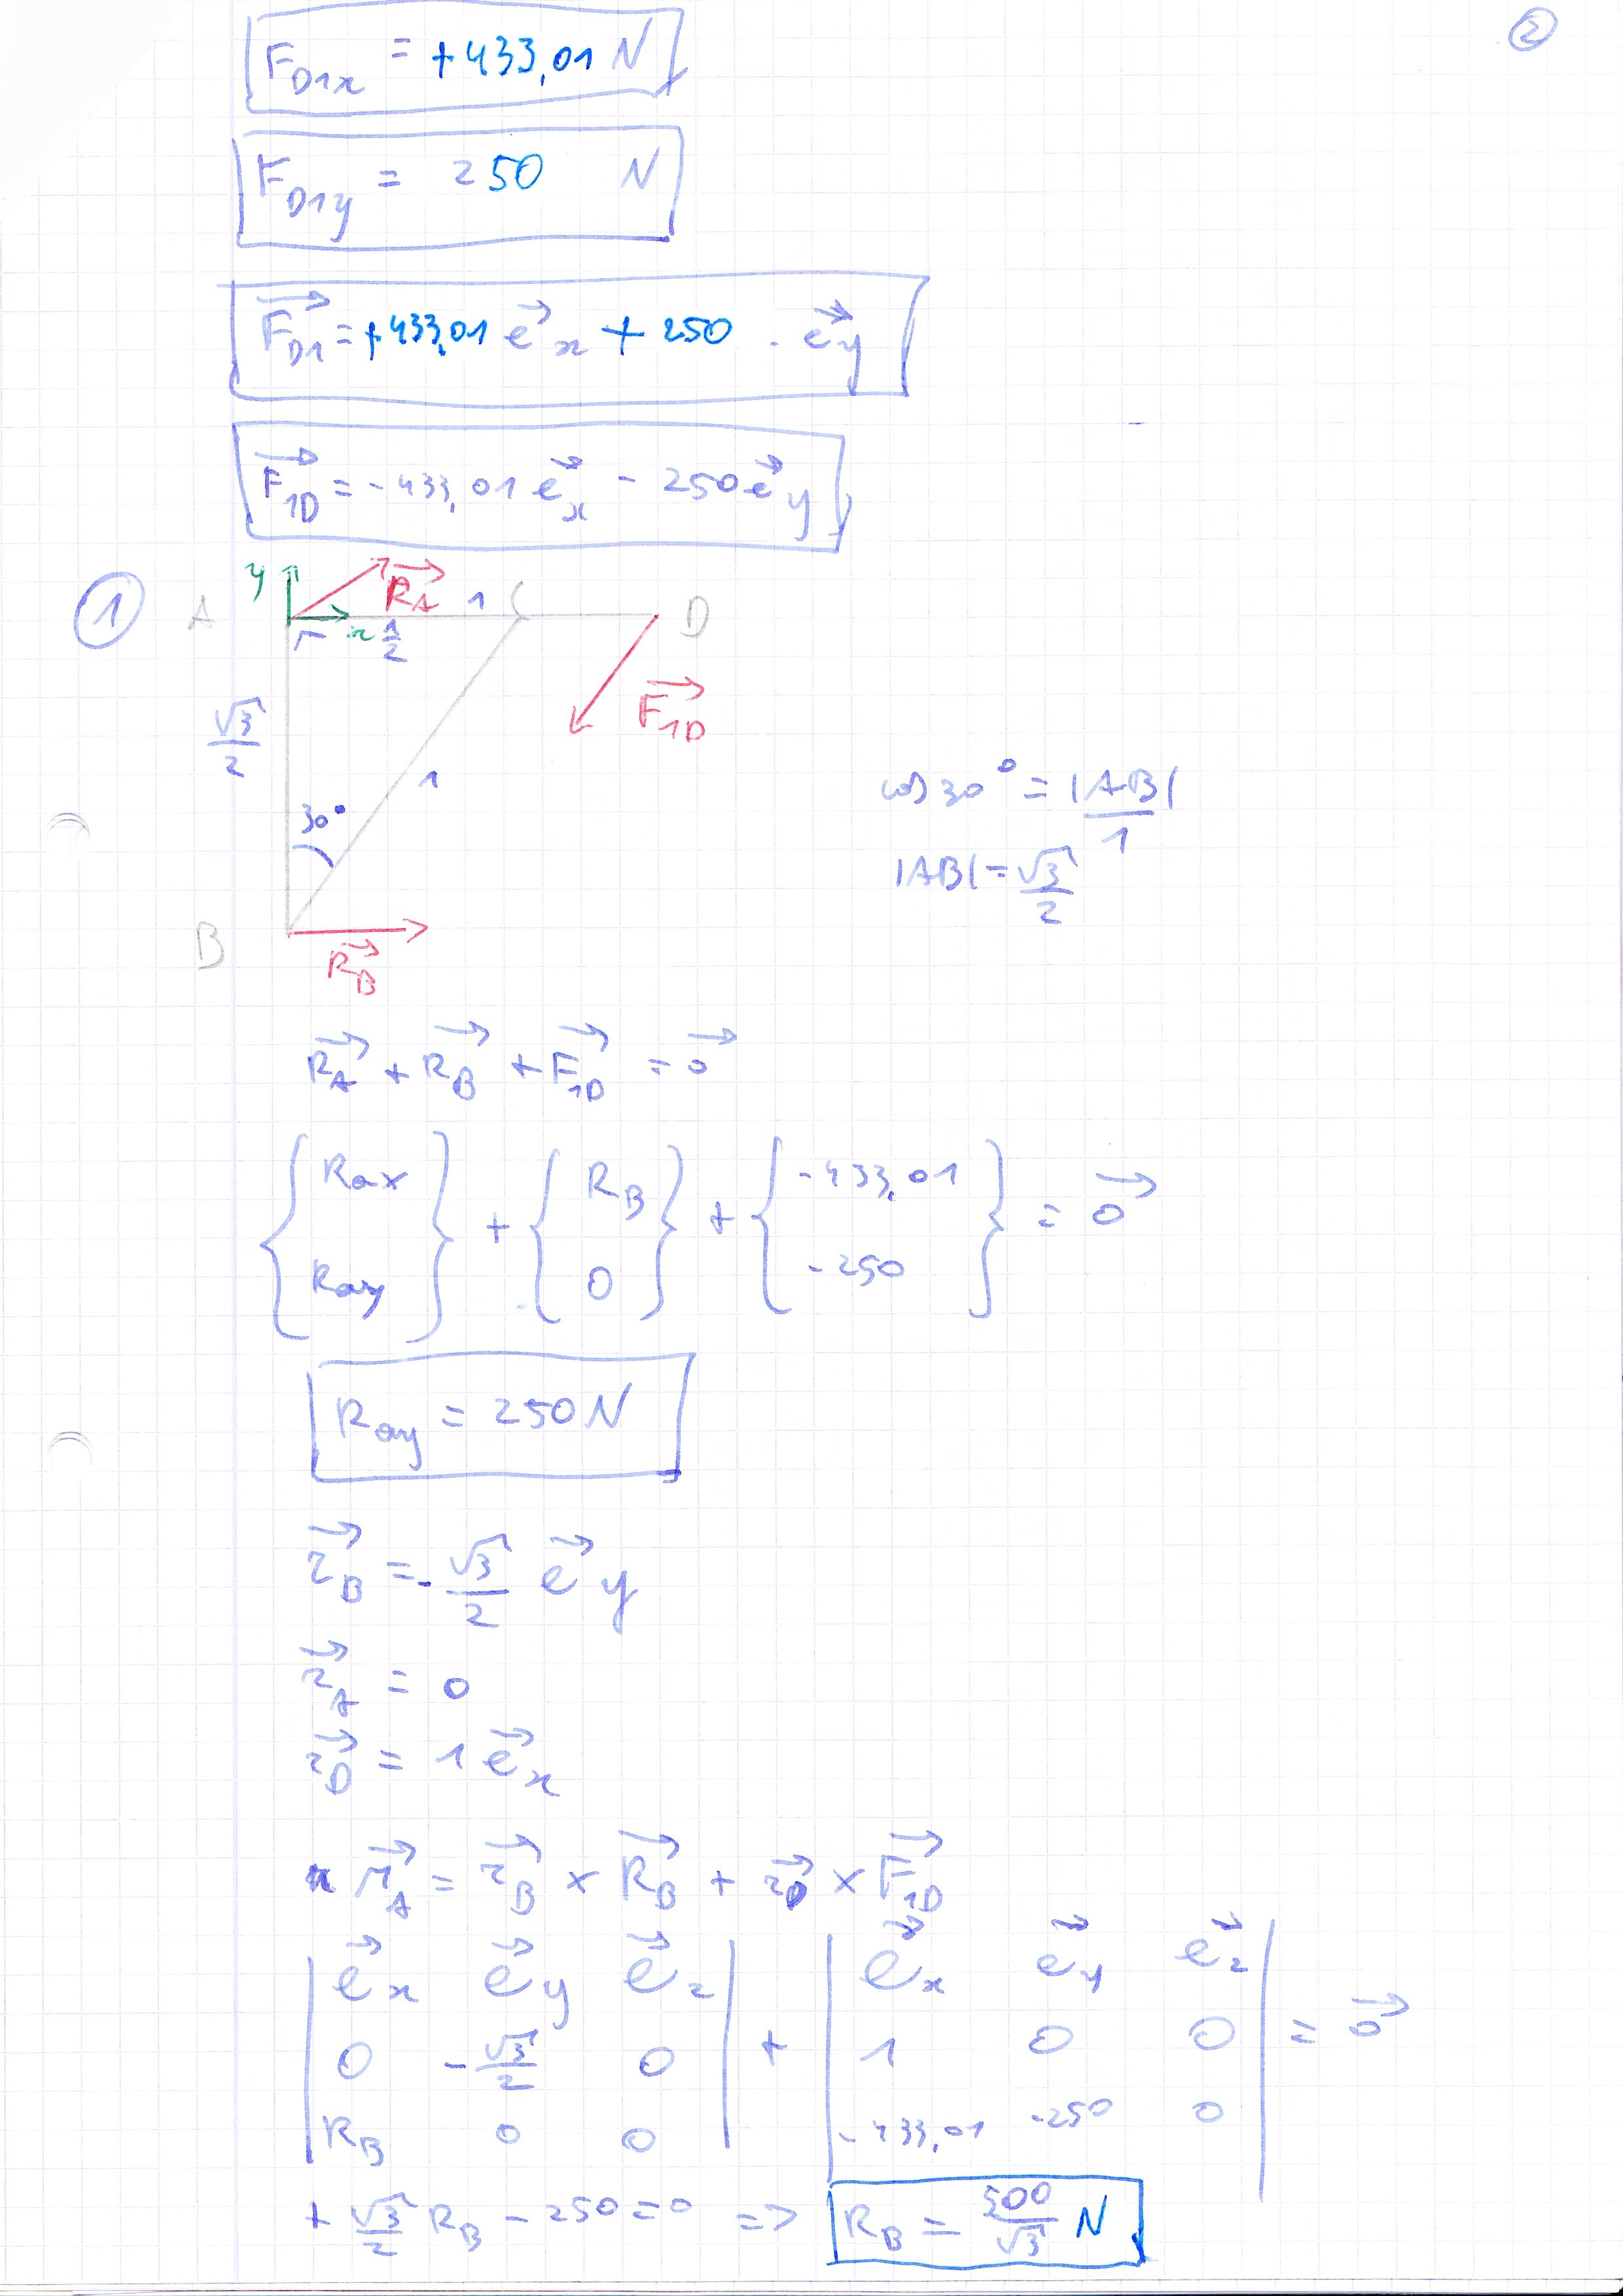 ②
F_D1x = +433,01 N
F_D1y = 250 N
F_D1 = +433,01 e_x + 250 . e_y
F_1D = -433,01 e_x - 250 e_y
①
y
R_A
A
x
1/2
1
C
D
√3/2
F_1D
1
30°
cos 30° = |AB|/1
|AB| = √3/2
B
R_B
R_A + R_B + F_1D = 0
{ Rax Ray } + { R_B 0 } + { -433,01 -250 } = 0
Ray = 250 N
r_B = -√3/2 e_y
r_A = 0
r_D = 1 e_x
M_A = r_B × R_B + r_D × F_1D
| e_x e_y e_z | + | e_x e_y e_z |
| 0 -√3/2 0 | + | 1 0 0 | = 0
| R_B 0 0 | | -433,01 -250 0 |
+ √3/2 R_B - 250 = 0 => R_B = 500/√3 N